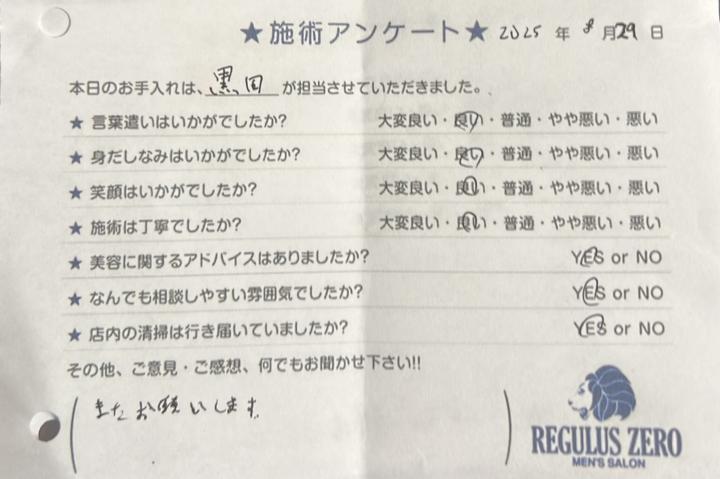 ★施術アンケート★ 2025 年 8 月 29 日
本日のお手入れは、黒田が担当させていただきました。
★ 言葉遣いはいかがでしたか? 大変良い・良い・普通・やや悪い・悪い
★ 身だしなみはいかがでしたか? 大変良い・良い・普通・やや悪い・悪い
★ 笑顔はいかがでしたか? 大変良い・良い・普通・やや悪い・悪い
★ 施術は丁寧でしたか? 大変良い・良い・普通・やや悪い・悪い
★ 美容に関するアドバイスはありましたか? YES or NO
★ なんでも相談しやすい雰囲気でしたか? YES or NO
★ 店内の清掃は行き届いていましたか? YES or NO
その他、ご意見・ご感想、何でもお聞かせ下さい!!
またお願いします
REGULUS ZERO
MEN'S SALON